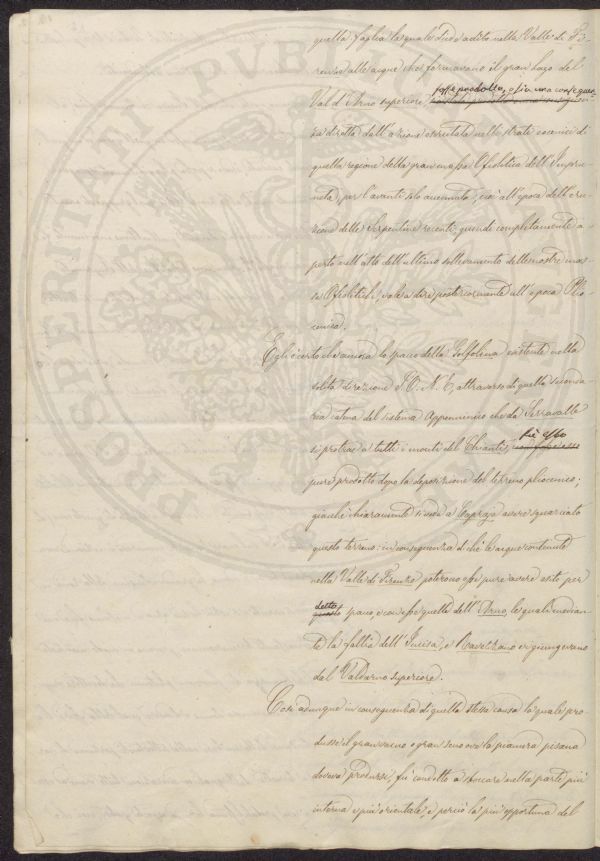 quella faglia la quale diede adito nella Valle di Fi-
renze alle acque che formavano il gran lago del
Val d'Arno superiore, fosse prodotto, o sia una conseguen-
za diretta dall'azione esercitata nello strato eocenici di
quella regione della gran massa Ofiolitica dell'Impru-
neta, per l'avanti solo accennato, cioè all'epoca dell'eru-
zione delle Serpentine recenti, quindi completamente a-
perto nell'atto dell'ultimo sollevamento delle nostre mas-
se Ofiolitiche, vale a dire posteriormente all'epoca Plio-
cenica.
Egli è certo che ancora lo spacco della Golfolina esistente nella
solita direzione S.O. N.E, attraverso di quella seconda-
ria catena del sistema Appenninico che da Serravalle
si protrae a tutti i monti del Chianti, fu esso
pure prodotto dopo la deposizione del terreno pliocenico;
giacchè chiaramente si vede a Capraja avere squarciato
questo terreno: in conseguenza di che le acque contenute
nella Valle di Firenze poterono esse pure avere esito per
detto spacco, e con esse quelle dell'Arno, le quali median-
te la fallia dell'Incisa, e Ravezzano vi giungevano
dal Valdarno superiore.
Così adunque in conseguenza di quella stessa causa la quale pro-
dusse il gran vacuo o gran seno ove la pianura pisana
doveva prodursi, fu condotto a sboccare nella parte più
interna e più orientale, e perciò la più opportuna del
PROSPERITATI PVBLICAE